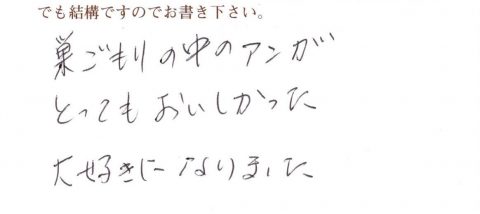 でも結構ですのでお書き下さい。
巣ごもりの中のアンが
とってもおいしかった
大好きになりました